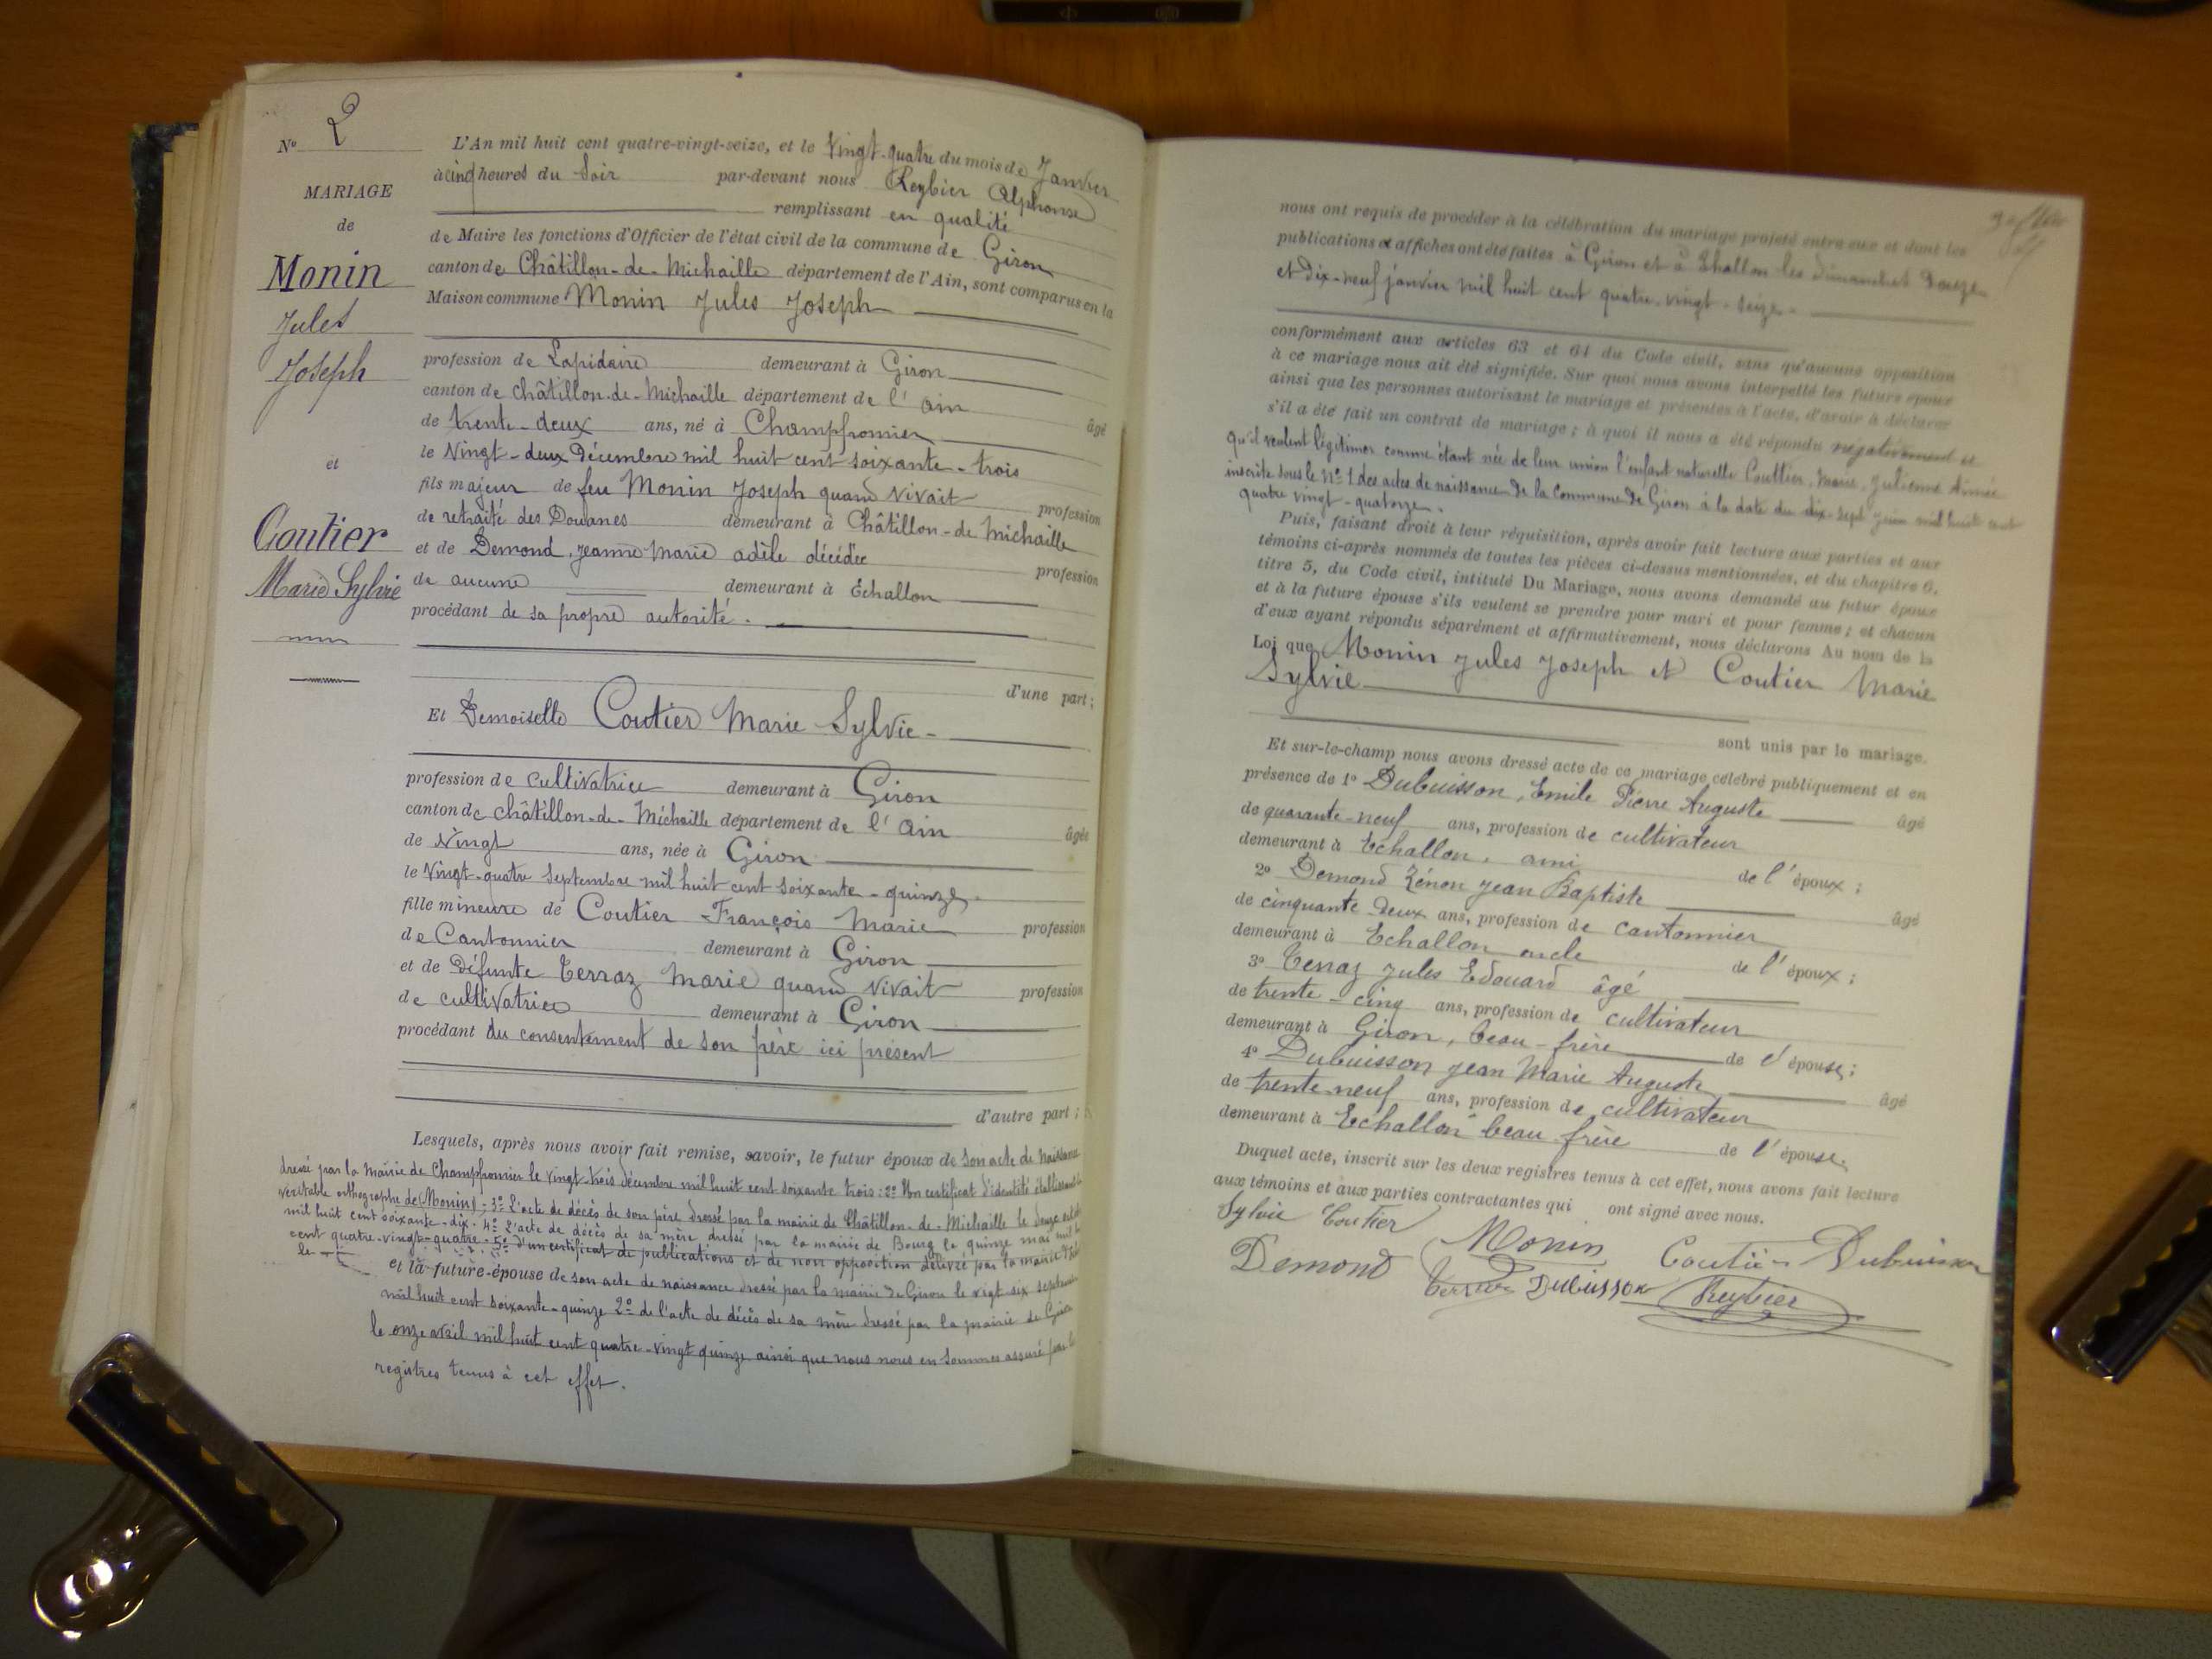 Nº 2
MARIAGE
de
Monin
Jules
Joseph
et
Coutier
Marie Sylvie
L'An mil huit cent quatre-vingt-seize, et le Vingt-quatre du mois de Janvier
à cinq heures du Soir par-devant nous Reybier Alphonse
remplissant en qualité
de Maire les fonctions d'Officier de l'état civil de la commune de Giron
canton de Châtillon-de-Michaille département de l'Ain, sont comparus en la
Maison commune Monin Jules Joseph
profession de Lapidaire demeurant à Giron
canton de Châtillon-de-Michaille département de l'ain âgé
de trente-deux ans, né à Champfromier
le Vingt-deux Décembre mil huit cent soixante-trois
fils majeur de feu Monin Joseph quand vivait profession
de retraité des Douanes demeurant à Châtillon-de Michaille
et de Demond, jeanne Marie adèle décédée profession
de aucune demeurant à Echallon
procédant de sa propre autorité.
d'une part;
Et Demoiselle Coutier Marie Sylvie -
profession de cultivatrice demeurant à Giron
canton de châtillon-de-Michaille département de l'ain âgée
de Vingt ans, née à Giron
le Vingt-quatre Septembre mil huit cent soixante-quinze
fille mineure de Coutier François Marie profession
de Cantonnier demeurant à Giron
et de défunte Terraz Marie quand vivait profession
de cultivatrice demeurant à Giron
procédant du consentement de son père ici présent
d'autre part;
Lesquels, après nous avoir fait remise, savoir, le futur époux de son acte de naissance
dressé par la mairie de Champfromier le vingt-trois décembre mil huit cent soixante trois: 2º Un certificat d'identité établissant la
veritable orthographe de (Monin); 3º L'acte de décès de son père dressé par la mairie de Châtillon-de-Michaille le douze
mil huit cent soixante-dix. 4º L'acte de décès de sa mère dressé par la mairie de Bourg le quinze mai mil
cent quatre-vingt-quatre. 5º d'un certificat de publications et de non opposition délivré par la mairie
le
et la future épouse de son acte de naissance dressé par la mairie de Giron le vigt-six septembre
mil huit cent soixante-quinze 2º de l'acte de décès de sa mère dressé par la mairie de Giron
le onze avril mil huit cent quatre-vingt quinze ainsi que nous nous en sommes assuré par
registres tenus à cet effet.
nous ont requis de procéder à la célébration du mariage projeté entre eux et dont les
publications et affiches ont été faites à Giron et à Echallon les dimanches Douze
et dix-neuf janvier mil huit cent quatre-vingt-seize.
conformément aux articles 63 et 64 du Code civil, sans qu'aucune opposition
à ce mariage nous ait été signifiée. Sur quoi nous avons interpellé les futurs époux
ainsi que les personnes autorisant le mariage et présentes à l'acte, d'avoir à déclarer
s'il a été fait un contrat de mariage; à quoi il nous a été répondu négativement et
qu'il veulent légitimer comme étant née de leur union l'enfant naturelle Couttier, Marie, Julienne Aimée
inscrite sous le Nº 1 des actes de naissance de la commune de Giron à la date du dix-sept juin mil huit cent
quatre vingt-quatorze.
Puis, faisant droit à leur réquisition, après avoir fait lecture aux parties et aux
témoins ci-après nommés de toutes les pièces ci-dessus mentionnées, et du chapitre 6,
titre 5, du Code civil, intitulé Du Mariage, nous avons demandé au futur époux
et à la future épouse s'ils veulent se prendre pour mari et pour femme; et chacun
d'eux ayant répondu séparément et affirmativement, nous déclarons Au nom de la
Loi que Monin Jules Joseph et Coutier Marie
Sylvie
sont unis par le mariage.
Et sur-le-champ nous avons dressé acte de ce mariage célébré publiquement et en
présence de 1º Dubuisson, Emile Pierre Auguste âgé
de quarante-neuf ans, profession de cultivateur
demeurant à Echallon, ami de l'époux;
2º Demond Zénon Jean Baptiste âgé
de cinquante deux ans, profession de cantonnier
demeurant à Echallon oncle de l'époux;
3º Terraz Jules Edouard âgé
de trente-cinq ans, profession de cultivateur
demeurant à Giron, beau-frère de l'épouse;
4º Dubuisson Jean Marie Auguste âgé
de trente neuf ans, profession de cultivateur
demeurant à Echallon beau-frère de l'épouse.
Duquel acte, inscrit sur les deux registres tenus à cet effet, nous avons fait lecture
aux témoins et aux parties contractantes qui ont signé avec nous.
Sylvie Coutier Monin Coutier Dubuisson
Demond Terraz Dubuisson Reybier